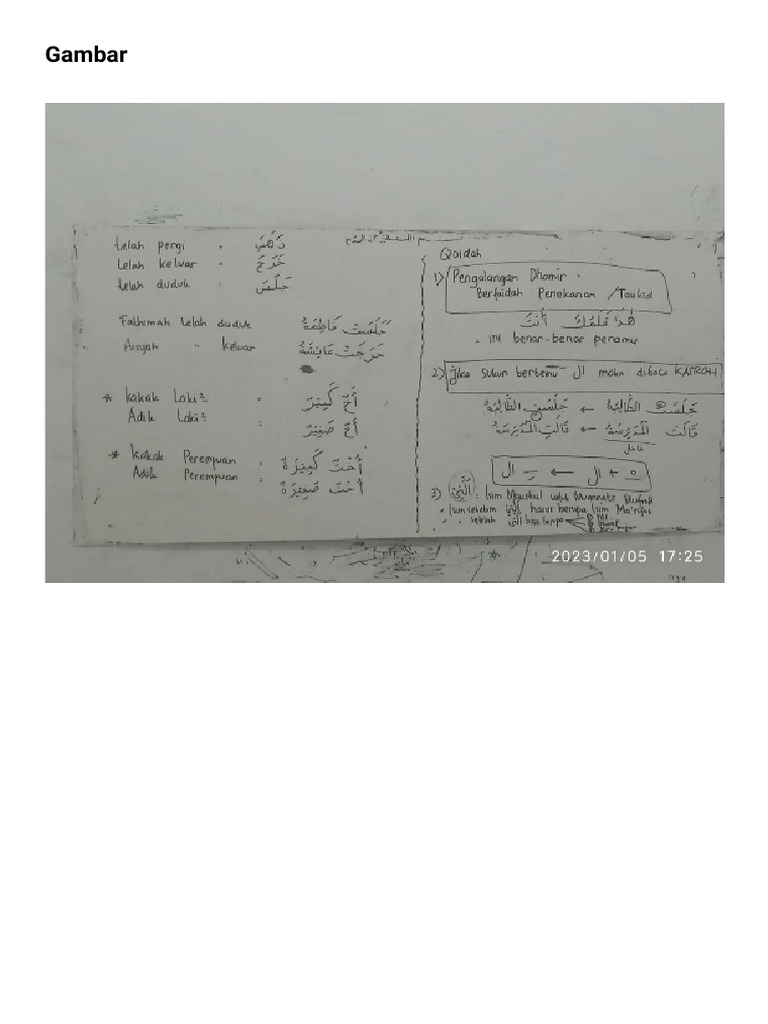 Gambar
telah pergi : ذَهَبَ
telah keluar : خَرَجَ
telah duduk : جَلَسَ
Fathimah telah duduk جَلَسَتْ فَاطِمَةُ
Aisyah " keluar خَرَجَتْ عَائِشَةُ
* Kakak Laki² : أَخٌ كَبِيْرٌ
Adik Laki² : أَخٌ صَغِيْرٌ
* Kakak Perempuan : أُخْتٌ كَبِيْرَةٌ
Adik Perempuan : أُخْتٌ صَغِيْرَةٌ
Qoidah
1) Pengulangan Dhomir
Berfaidah Penekanan / Taukid
هٰذَا قَلَمُكَ أَنْتَ
: ini benar-benar penamu
2) Jika sukun bertemu ال maka dibaca KASROH
جَلَسَتْ الطَّالِبَةُ ← جَلَسَتِ الطَّالِبَةُ
قَالَتْ الْمُدَرِّسَةُ ← قَالَتِ الْمُدَرِّسَةُ
فاعل
ـْ + ال ← ـِ ال
3) الَّتِيْ : Isim Maushul untuk Muannats Mufrad
Isim sebelum الَّتِيْ harus berupa Isim Ma'rifat
" setelah الَّتِيْ bisa berupa
2023/01/05 17:25